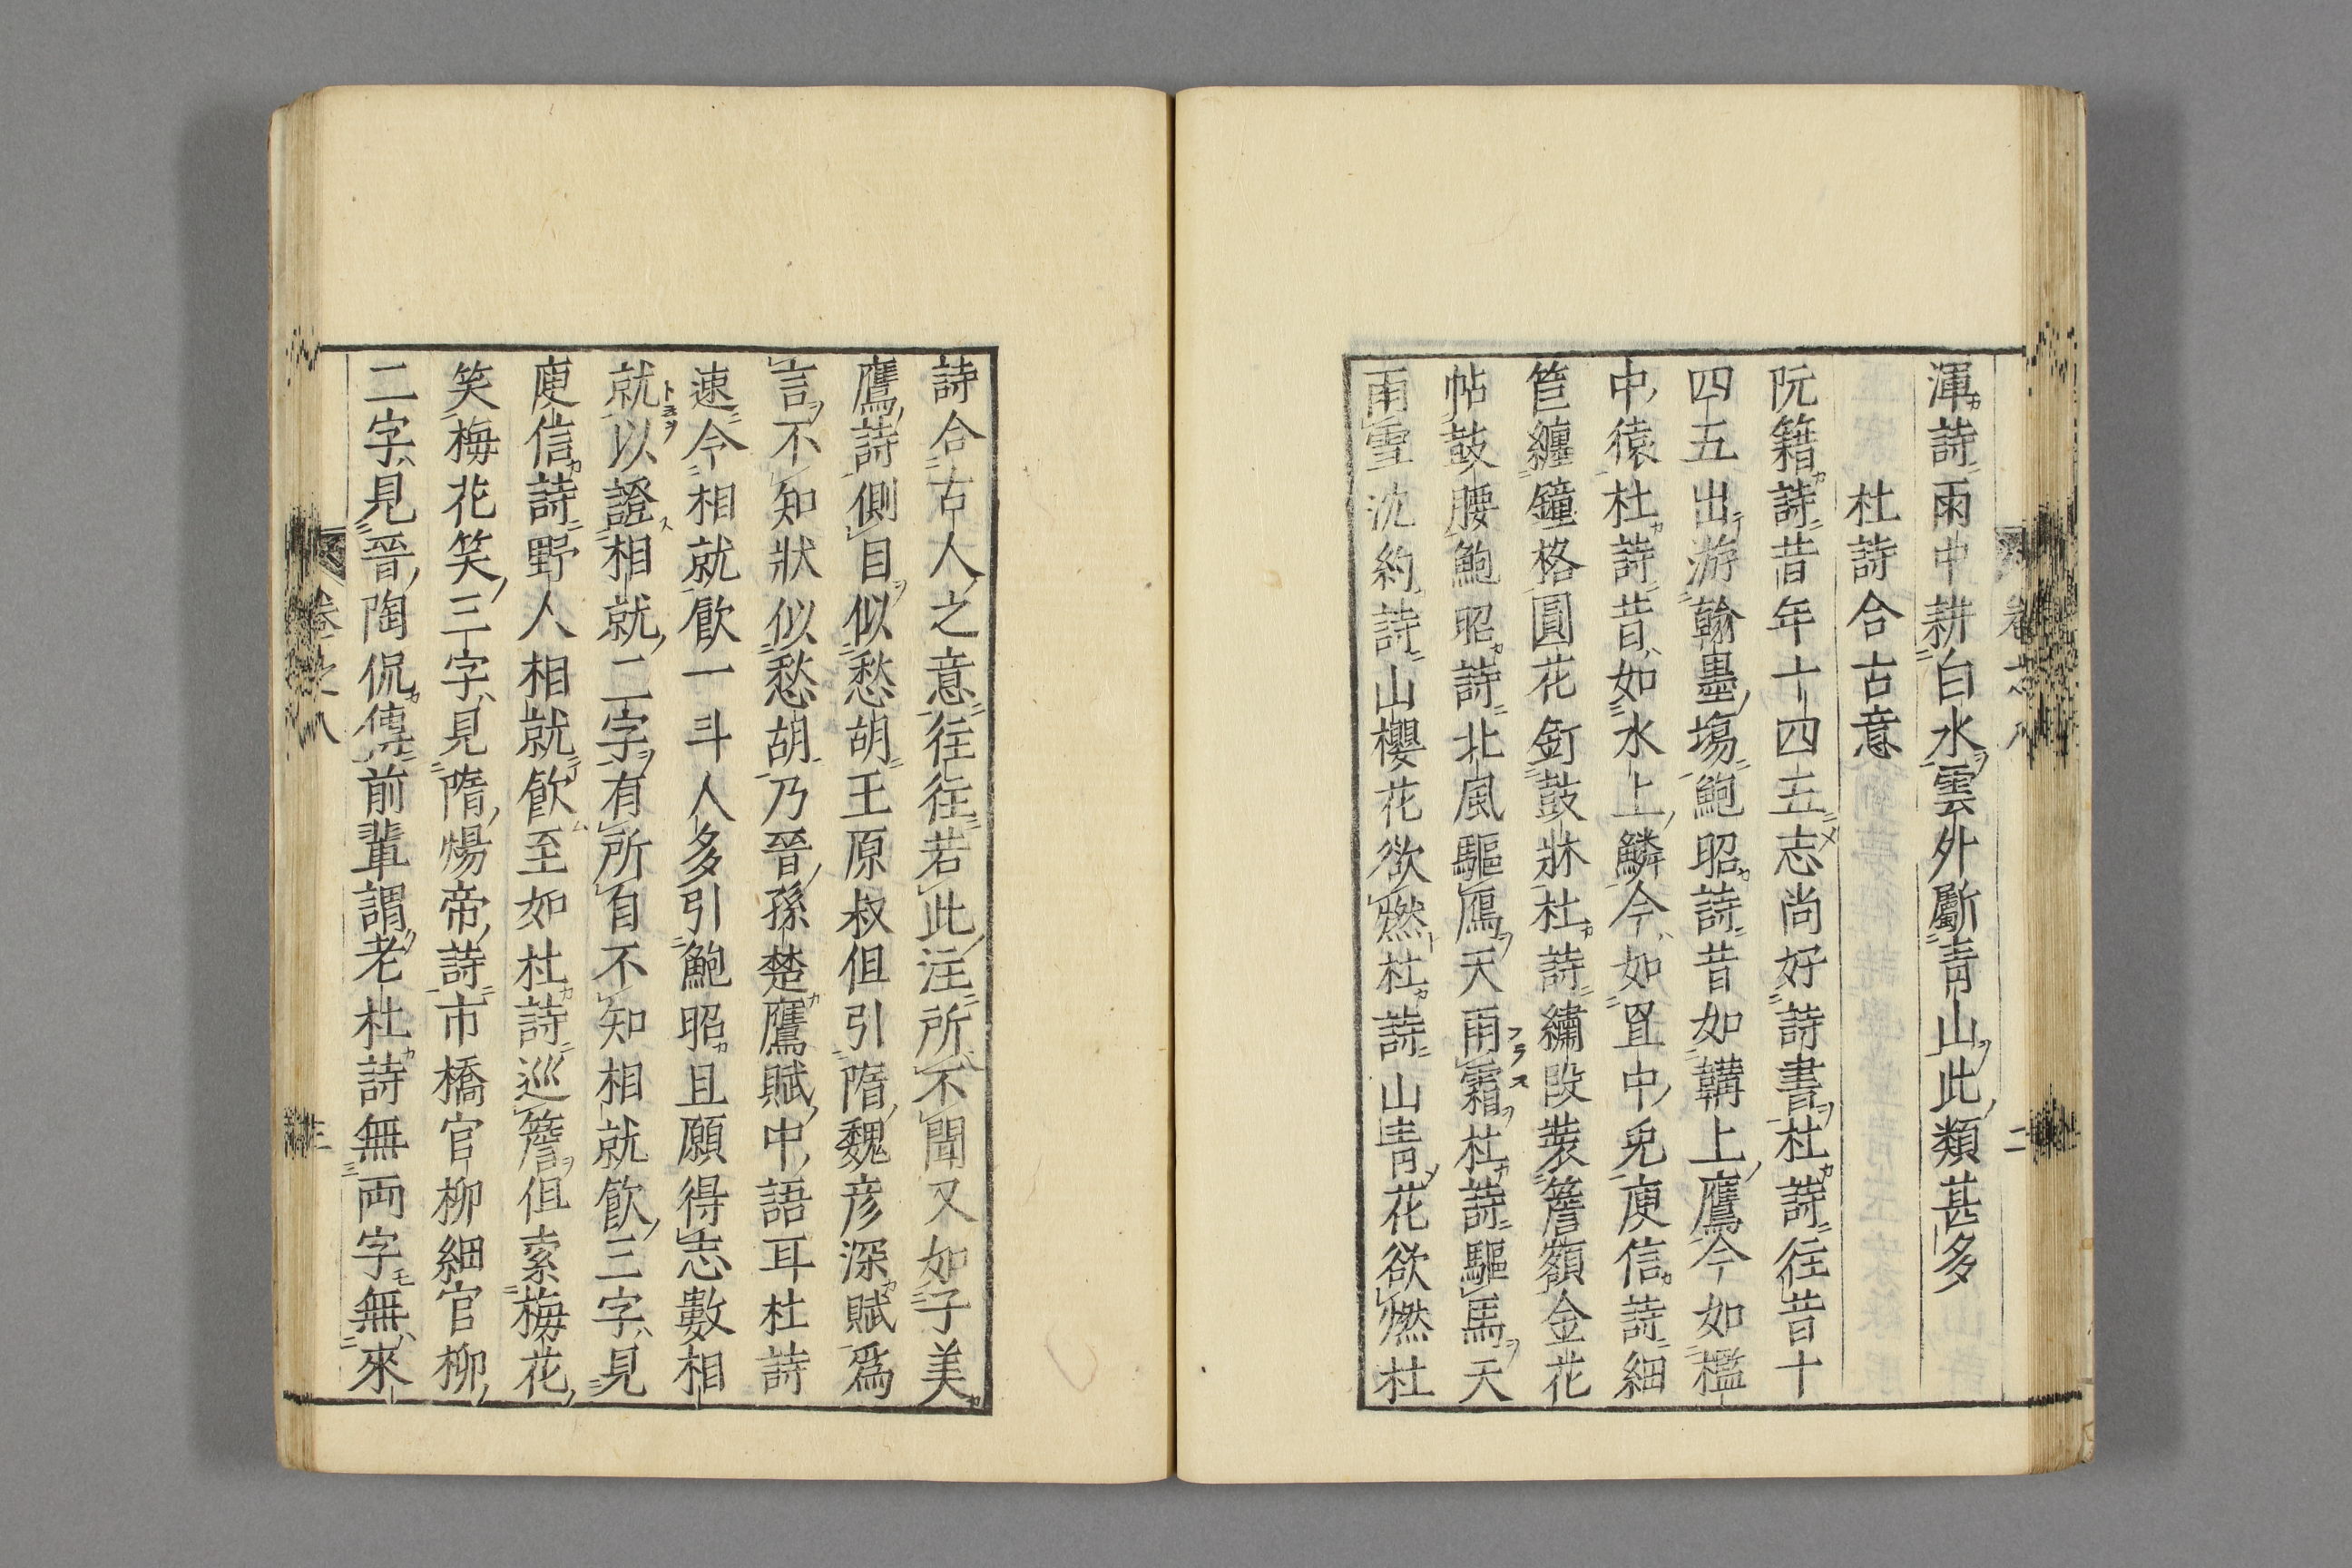 渾詩雨中耕白水雲外斸青山此類甚多
杜詩合古意
阮籍詩昔年十四五志尚好詩書杜詩往昔十
四五出游翰墨塲鮑昭詩昔如韝上鷹今如檻
中猿杜詩昔如水上鱗今如罝中兔庾信詩細
笆纏鐘格圓花釘鼓牀杜詩繡段裝簷額金花
帖鼓腰鮑昭詩北風驅鴈天雨霜杜詩驅馬天
雨雪沈約詩山櫻花欲燃杜詩山青花欲燃杜
詩合古人之意往往若此注所不聞又如子美
鷹詩側目似愁胡王原叔但引隋魏彦深賦爲
言不知狀似愁胡乃晉孫楚鷹賦中語耳杜詩
速今相就飲一斗人多引鮑昭且願得志數相
就以證相就二字有所自不知相就飲三字見
庾信詩野人相就飲至如杜詩巡簷但索梅花
笑梅花笑三字見隋煬帝詩市橋官柳細官柳
二字見晉陶侃傳前輩謂老杜詩無両字無來
卷之八
二
卷之八
三